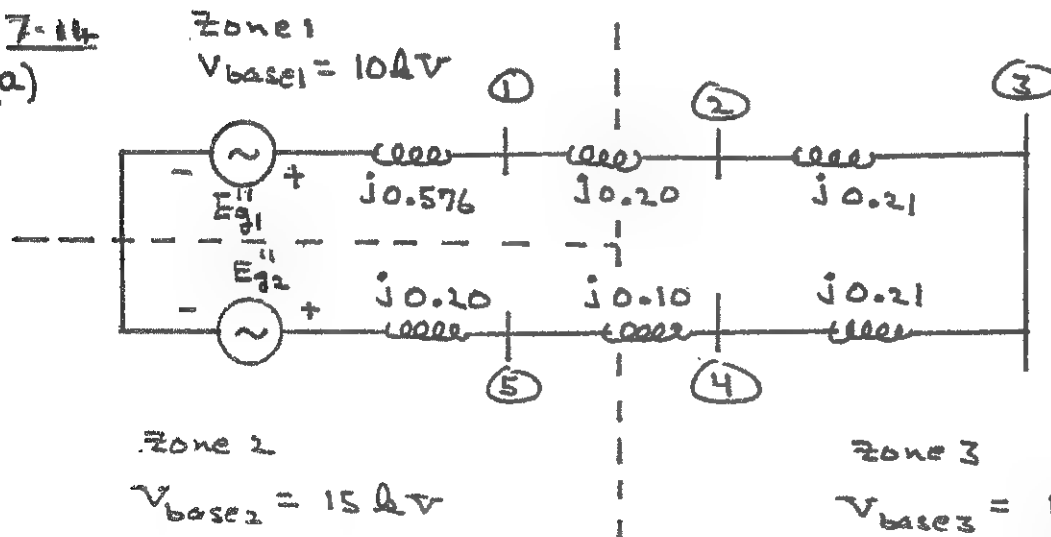 7.14
a)
Zone 1
Vbase1 = 10kV
① ② ③
- + j0.576 j0.20 j0.21
Eg1"
Eg2"
- + j0.20 j0.10 j0.21
⑤ ④
Zone 2
Vbase2 = 15kV
Zone 3
Vbase3 =